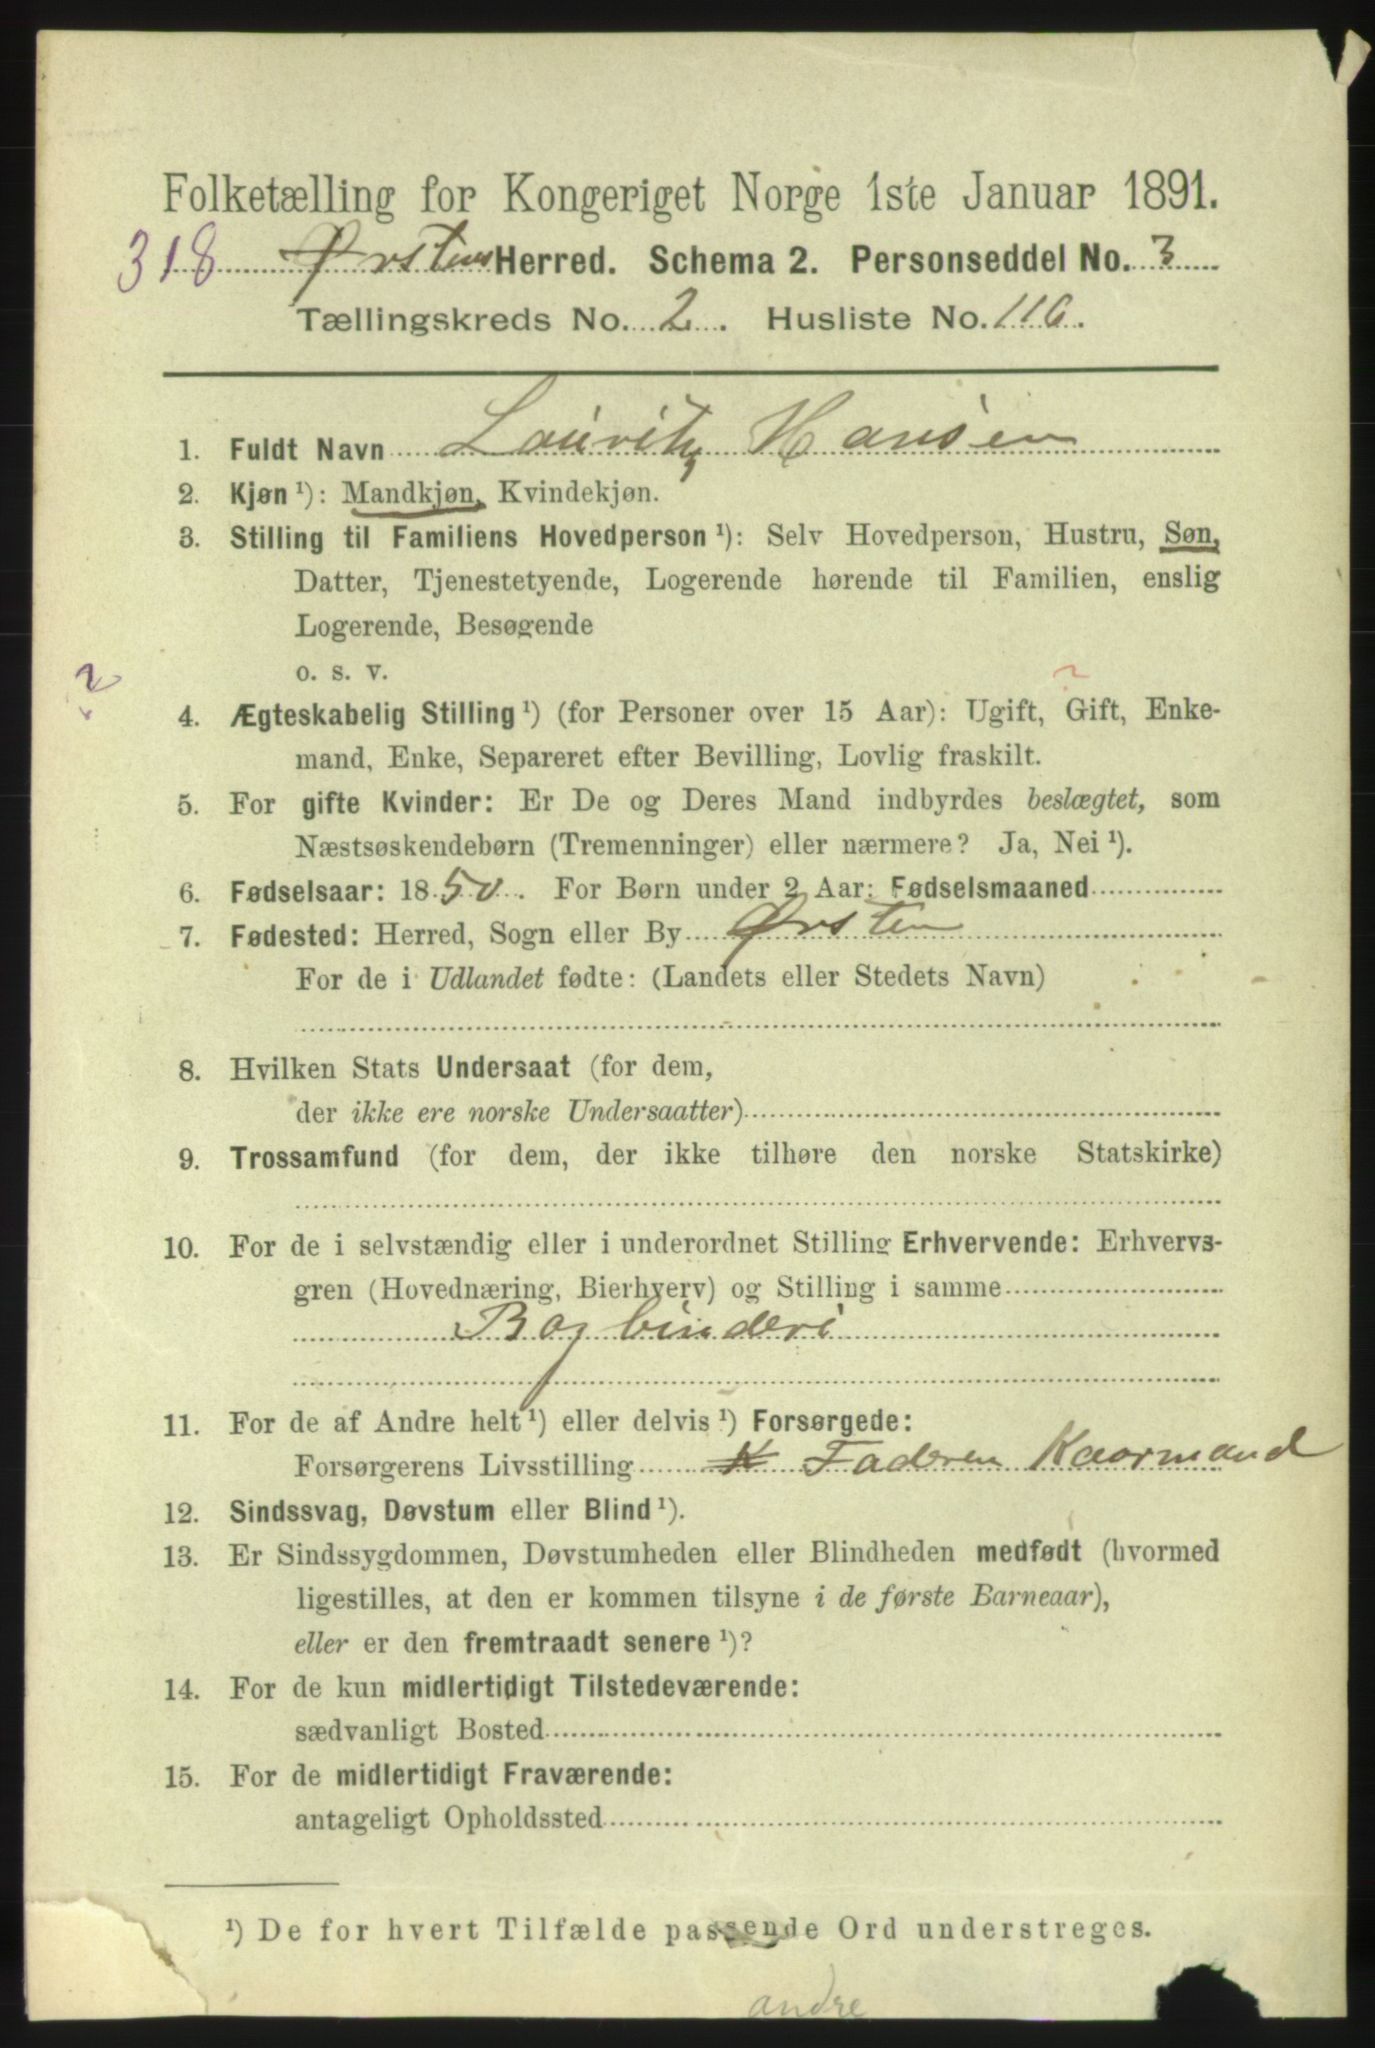 Folketælling for Kongeriget Norge 1ste Januar 1891.
318 Ørstens Herred. Schema 2. Personseddel No. 3
Tællingskreds No. 2. Husliste No. 116.
1. Fuldt Navn Lauritz Hansen
2. Kjøn ¹): Mandkjøn, Kvindekjøn.
3. Stilling til Familiens Hovedperson ¹): Selv Hovedperson, Hustru, Søn,
Datter, Tjenestetyende, Logerende hørende til Familien, enslig
Logerende, Besøgende
o. s. v.
2
4. Ægteskabelig Stilling ¹) (for Personer over 15 Aar): Ugift, Gift, Enke-
mand, Enke, Separeret efter Bevilling, Lovlig fraskilt.
5. For gifte Kvinder: Er De og Deres Mand indbyrdes beslægtet, som
Næstsøskendebørn (Tremenninger) eller nærmere? Ja, Nei ¹).
6. Fødselsaar: 1850. For Børn under 2 Aar: Fødselsmaaned
7. Fødested: Herred, Sogn eller By Ørsten
For de i Udlandet fødte: (Landets eller Stedets Navn)
8. Hvilken Stats Undersaat (for dem,
der ikke ere norske Undersaatter)
9. Trossamfund (for dem, der ikke tilhøre den norske Statskirke)
10. For de i selvstændig eller i underordnet Stilling Erhvervende: Erhvervs-
gren (Hovednæring, Bierhverv) og Stilling i samme
Bogbinderi
11. For de af Andre helt ¹) eller delvis ¹) Forsørgede:
Forsørgerens Livsstilling K Faderen Kaarmand
12. Sindssvag, Døvstum eller Blind ¹).
13. Er Sindssygdommen, Døvstumheden eller Blindheden medfødt (hvormed
ligestilles, at den er kommen tilsyne i de første Barneaar),
eller er den fremtraadt senere ¹)?
14. For de kun midlertidigt Tilstedeværende:
sædvanligt Bosted
15. For de midlertidigt Fraværende:
antageligt Opholdssted
¹) De for hvert Tilfælde passende Ord understreges.
andre